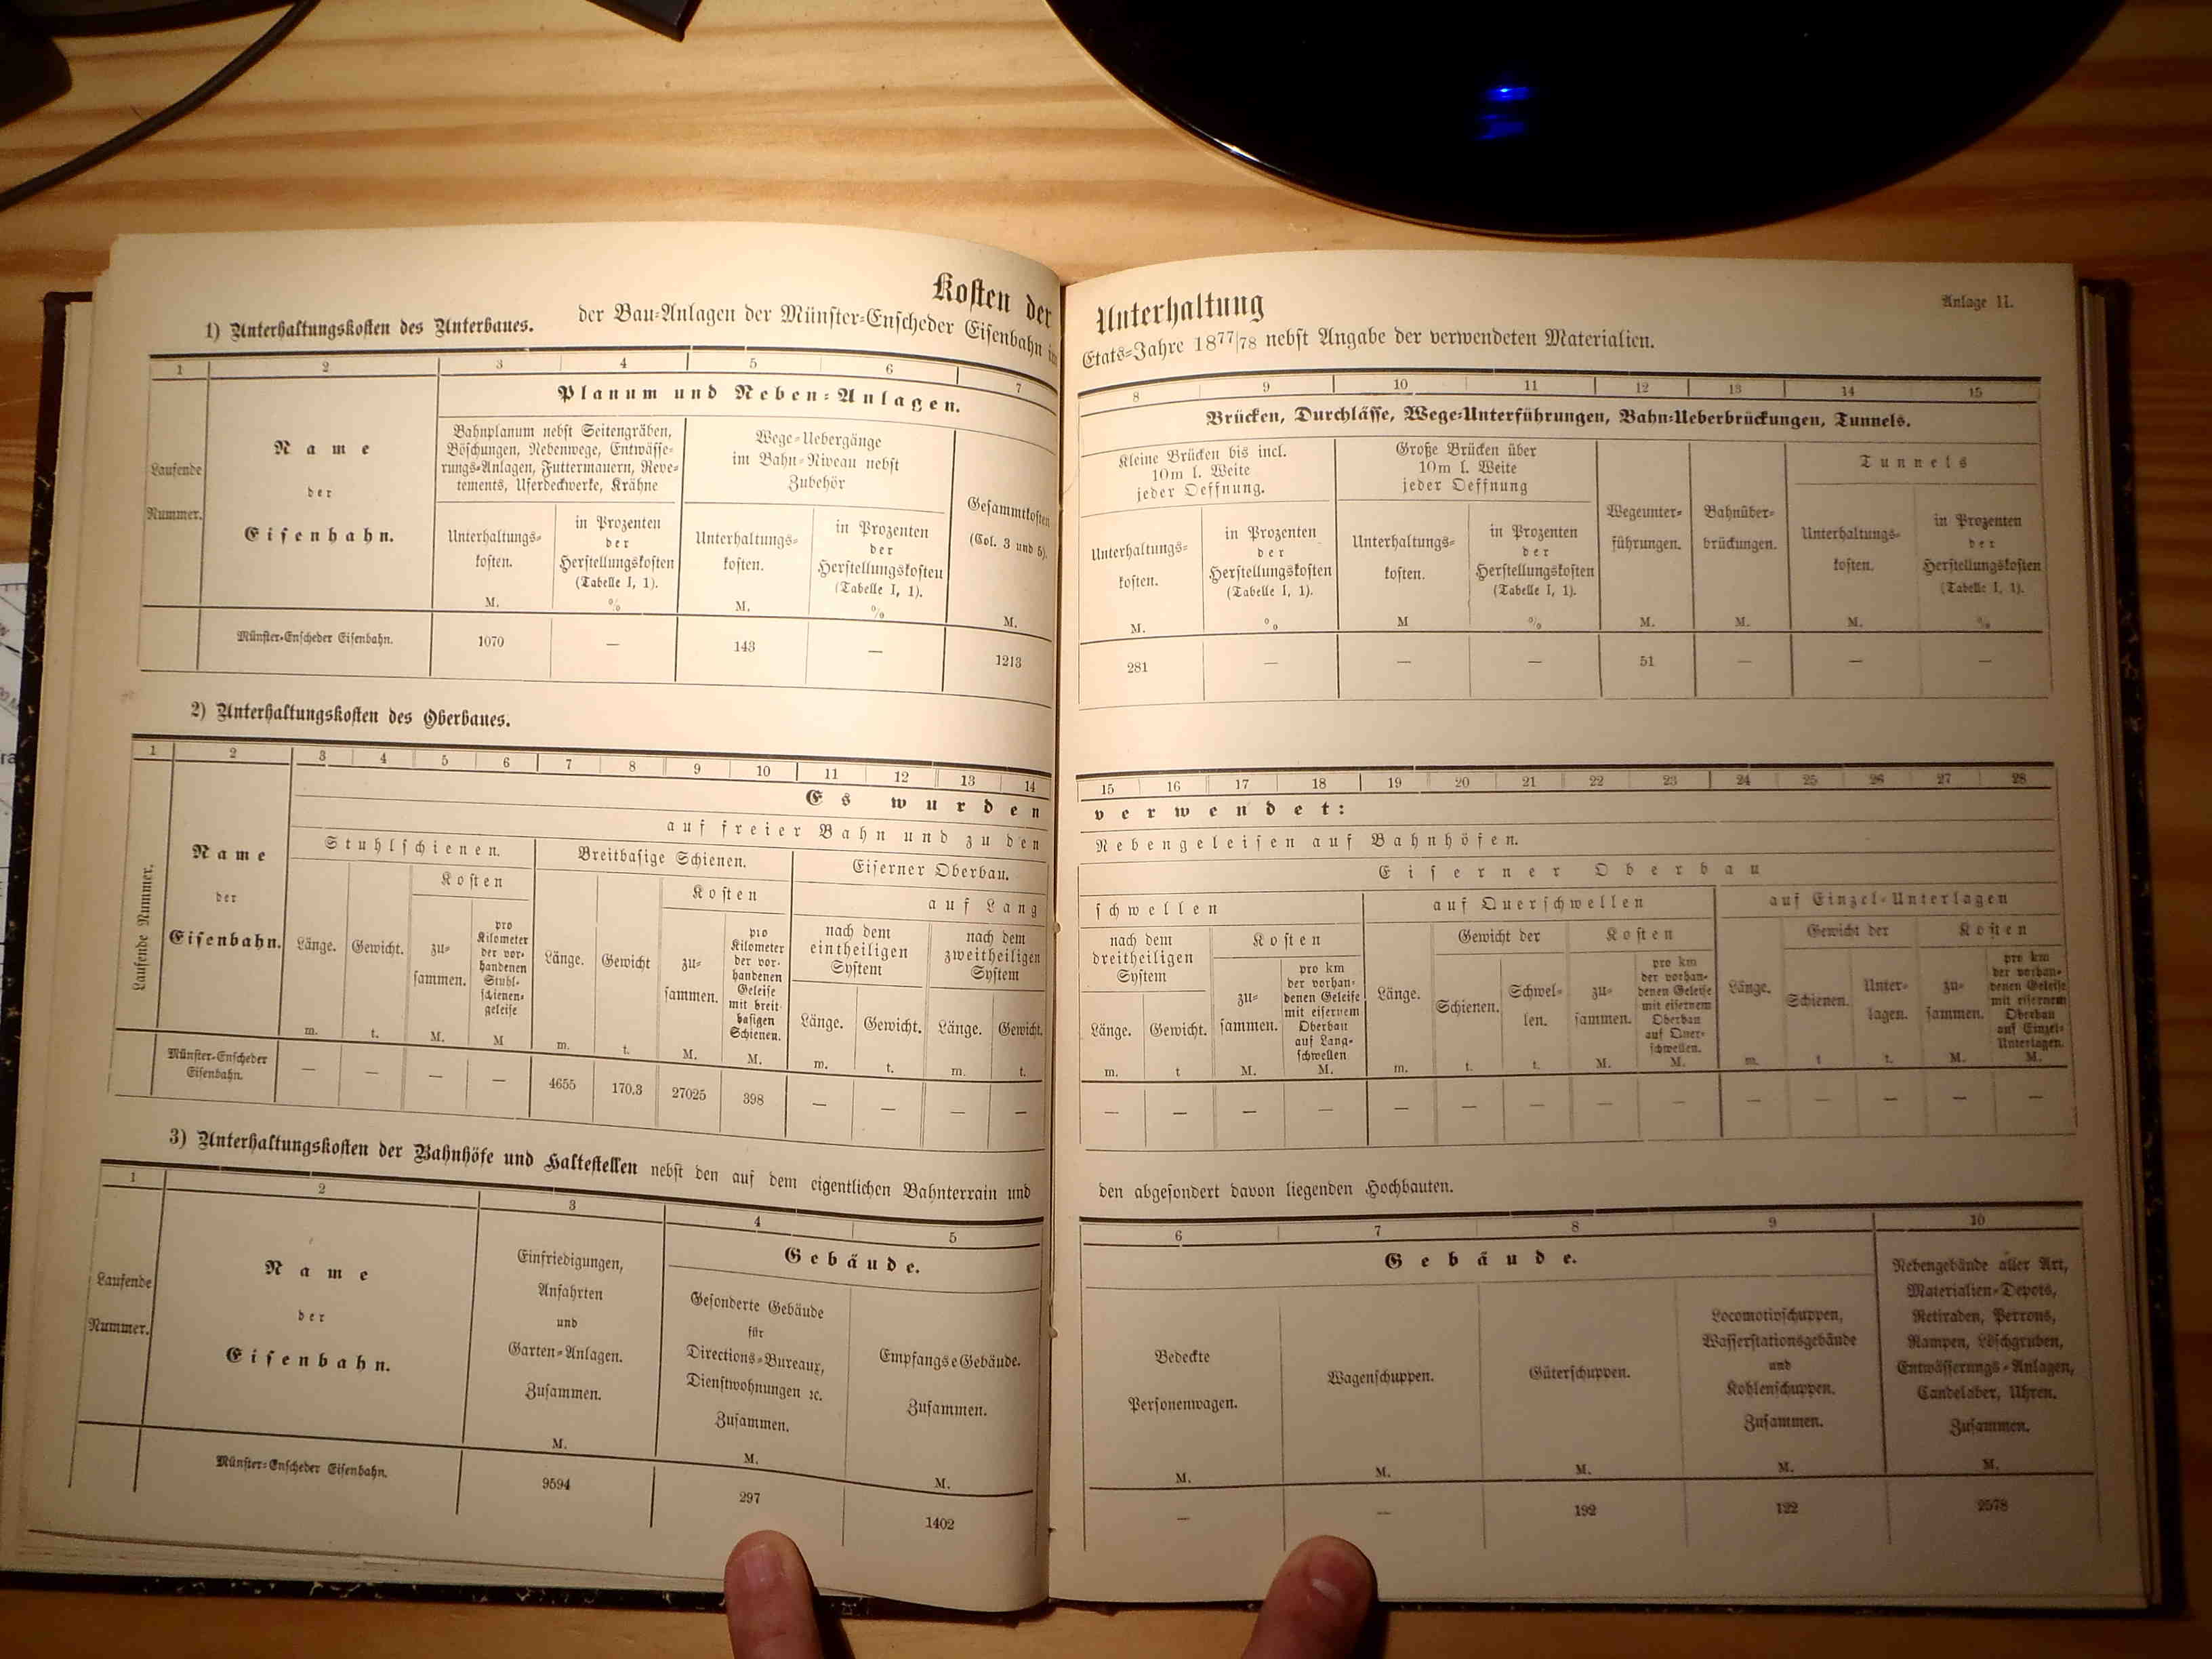 Kosten der Unterhaltung
Anlage 11.
der Bau-Anlagen der Münster-Enscheder Eisenbahn im Etats-Jahre 1877/78 nebst Angabe der verwendeten Materialien.
1) Unterhaltungskosten des Unterbaues.
1 2 3 4 5 6 7 8 9 10 11 12 13 14 15
Laufende
Nummer.
Name
der
Eisenbahn.
Planum und Neben-Anlagen.
Bahnplanum nebst Seitengräben,
Böschungen, Nebenwege, Entwässe-
rungs-Anlagen, Futtermauern, Reve-
tements, Uferdeckwerke, Krähne
Unterhaltungs-
kosten.
M.
in Prozenten
der
Herstellungskosten
(Tabelle I, 1).
%
Wege-Uebergänge
im Bahn-Niveau nebst
Zubehör
Unterhaltungs-
kosten.
M.
in Prozenten
der
Herstellungskosten
(Tabelle I, 1).
%
Gesammtkosten
(Col. 3 und 5).
M.
Brücken, Durchlässe, Wege-Unterführungen, Bahn-Ueberbrückungen, Tunnels.
Kleine Brücken bis incl.
10m l. Weite
jeder Oeffnung.
Unterhaltungs-
kosten.
M.
in Prozenten
der
Herstellungskosten
(Tabelle I, 1).
%
Große Brücken über
10m l. Weite
jeder Oeffnung
Unterhaltungs-
kosten.
M
in Prozenten
der
Herstellungskosten
(Tabelle I, 1).
%
Wegeunter-
führungen.
M.
Bahnüber-
brückungen.
M.
Tunnels
Unterhaltungs-
kosten.
M.
in Prozenten
der
Herstellungskosten
(Tabelle I, 1).
%
Münster-Enscheder Eisenbahn. 1070 — 143 — 1213 281 — — — 51 — — —
2) Unterhaltungskosten des Oberbaues.
1 2 3 4 5 6 7 8 9 10 11 12 13 14 15 16 17 18 19 20 21 22 23 24 25 26 27 28
Laufende Nummer.
Name
der
Eisenbahn.
Es wurden verwendet:
auf freier Bahn und zu den Nebengeleisen auf Bahnhöfen.
Stuhlschienen.
Länge.
m.
Gewicht.
t.
Kosten
zu-
sammen.
M.
pro
Kilometer
der vor-
handenen
Stuhl-
schienen-
geleise
M
Breitbasige Schienen.
Länge.
m.
Gewicht
t.
Kosten
zu-
sammen.
M.
pro
Kilometer
der vor-
handenen
Geleise
mit breit-
basigen
Schienen.
M.
Eiserner Oberbau.
Eiserner Oberbau
auf Lang
schwellen
nach dem
eintheiligen
System
Länge.
m.
Gewicht.
t.
nach dem
zweitheiligen
System
Länge.
m.
Gewicht.
t.
nach dem
dreitheiligen
System
Länge.
m.
Gewicht.
t
Kosten
zu-
sammen.
M.
pro km
der vorhan-
denen Geleise
mit eisernem
Oberbau
auf Lang-
schwellen
M.
auf Querschwellen
Länge.
m.
Gewicht der
Schienen.
t.
Schwel-
len.
t.
Kosten
zu-
sammen.
M.
pro km
der vorhan-
denen Geleise
mit eisernem
Oberbau
auf Quer-
schwellen.
M.
auf Einzel-Unterlagen
Länge.
m.
Gewicht der
Schienen.
t
Unter-
lagen.
t.
Kosten
zu-
sammen.
M.
pro km
der vorhan-
denen Geleise
mit eisernem
Oberbau
auf Einzel-
Unterlagen.
M.
Münster-Enscheder
Eisenbahn. — — — — 4655 170.3 27025 398 — — — — — — — — — — — — — — — — — —
3) Unterhaltungskosten der Bahnhöfe und Haltestellen nebst den auf dem eigentlichen Bahnterrain und den abgesondert davon liegenden Hochbauten.
1 2 3 4 5 6 7 8 9 10
Laufende
Nummer.
Name
der
Eisenbahn.
Einfriedigungen,
Anfahrten
und
Garten-Anlagen.
Zusammen.
M.
Gebäude.
Gesonderte Gebäude
für
Directions-Bureaux,
Dienstwohnungen ꝛc.
Zusammen.
M.
Empfangs-Gebäude.
Zusammen.
M.
Gebäude.
Bedeckte
Personenwagen.
M.
Wagenschuppen.
M.
Güterschuppen.
M.
Locomotivschuppen,
Wasserstationsgebäude
und
Kohlenschuppen.
Zusammen.
M.
Nebengebäude aller Art,
Materialien-Depots,
Retiraden, Perrons,
Rampen, Löschgruben,
Entwässerungs-Anlagen,
Candelaber, Uhren.
Zusammen.
M.
Münster-Enscheder Eisenbahn. 9594 297 1402 — — 192 122 2578